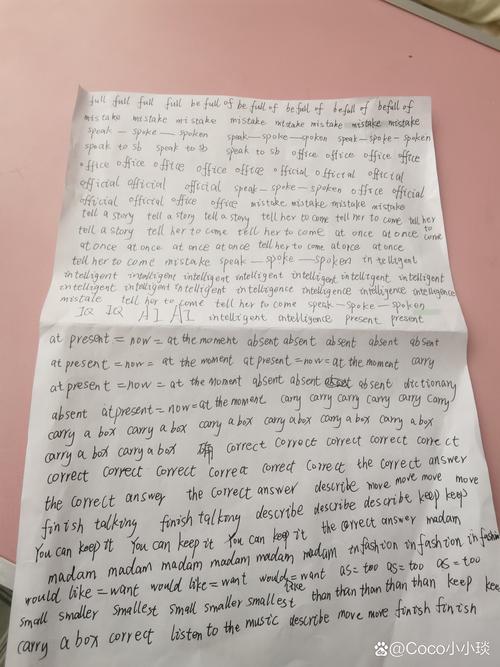 full full full full be full of be full of be full of be full of
mistake mistake mistake mistake mistake mistake mistake mistake
speak — spoke — spoken speak — spoke — spoken speak — spoke — spoken
speak to sb speak to sb speak to sb office office office office
office office office office office official official official
official official official speak — spoke — spoken office official
official official office office mistake mistake mistake mistake
tell a story tell a story tell a story tell her to come tell her to come tell her to come
tell a story tell her to come tell her to come at once at once
at once at once at once at once tell her to come at once at once
tell her to come mistake speak — spoke — spoken intelligent
intelligent intelligent intelligent intelligent intelligent intelligent intelligent
intelligent intelligent intelligent intelligence intelligence intelligence intelligence
mistake tell her to come tell her to come speak — spoke — spoken
IQ IQ AI AI intelligent intelligence present present
at present = now = at the moment absent absent absent absent absent
at present = now = at the moment at present = now = at the moment carry
at present = now = at the moment absent absent absent dictionary
absent at present = now = at the moment carry carry carry carry carry carry
carry a box carry a box carry a box carry a box carry a box carry a box
carry a box carry a box 确 correct correct correct correct correct
correct correct correct correct correct correct the correct answer
the correct answer the correct answer describe move move move move
finish talking finish talking describe describe describe keep keep
You can keep it You can keep it You can keep it the correct answer madam
madam madam madam madam madam madam in fashion in fashion in fashion
would like = want would like = want would like = want as = too as = too as = too
small smaller smallest small smaller smallest than than than than than keep keep
carry a box correct listen to the music describe move move finish finish
@Coco小小琰